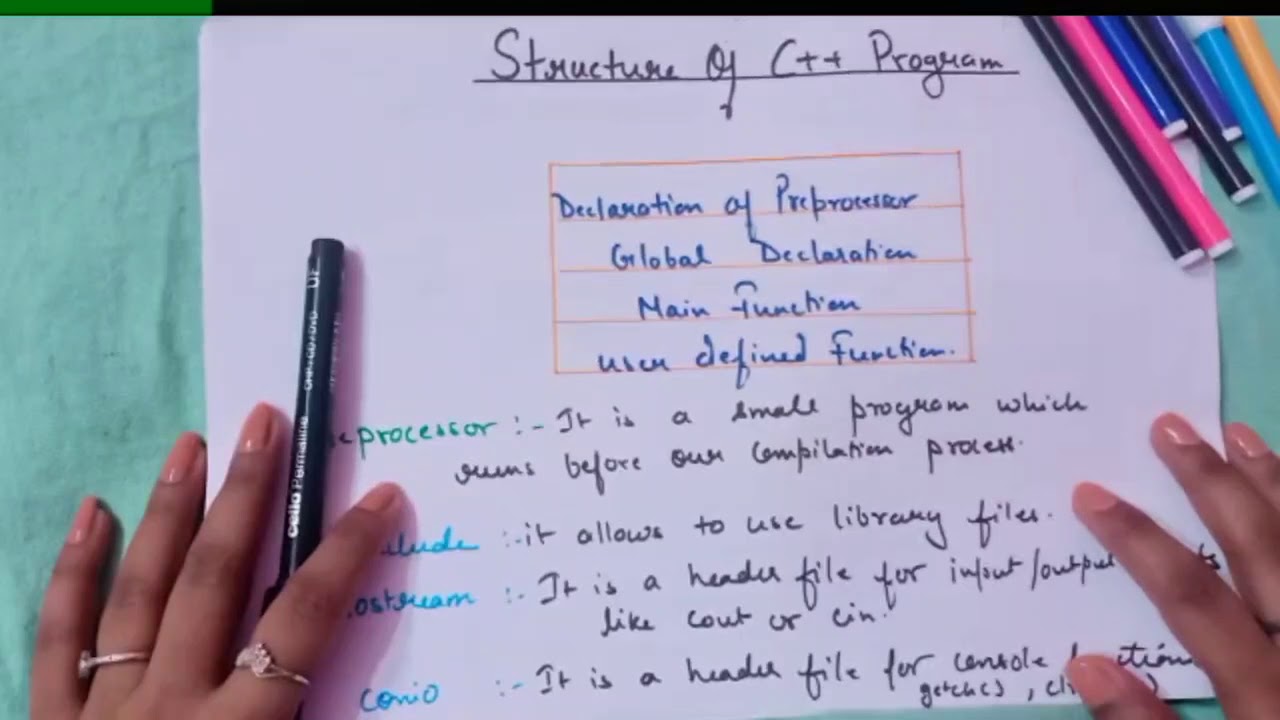 Structure Of C++ Program
Declaration of Preprocessor
Global Declaration
Main Function
user defined Function.
eprocessor :- It is a small program which
runs before our compilation process.
clude :- it allows to use library files.
ostream :- It is a header file for input/output
like cout or cin.
conio :- It is a header file for console
getch(),
cello Permaline